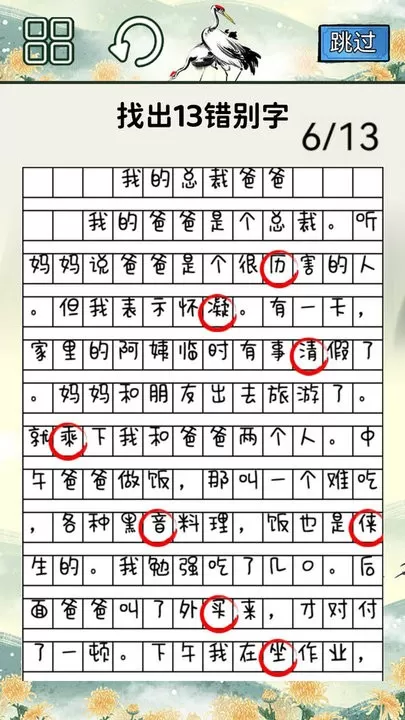 跳过
找出13错别字
6/13
我的总裁爸爸
我的爸爸是个总裁。听
妈妈说爸爸是个很历害的人
。但我表示怀凝。有一天,
家里的阿姨临时有事清假了
。妈妈和朋友出去旅游了。
就乘下我和爸爸两个人。中
午爸爸做饭,那叫一个难吃
,各种黑音料理,饭也是侠
生的。我勉强吃了几口。后
面爸爸叫了外买来,才对付
了一顿。下午我在坐作业,